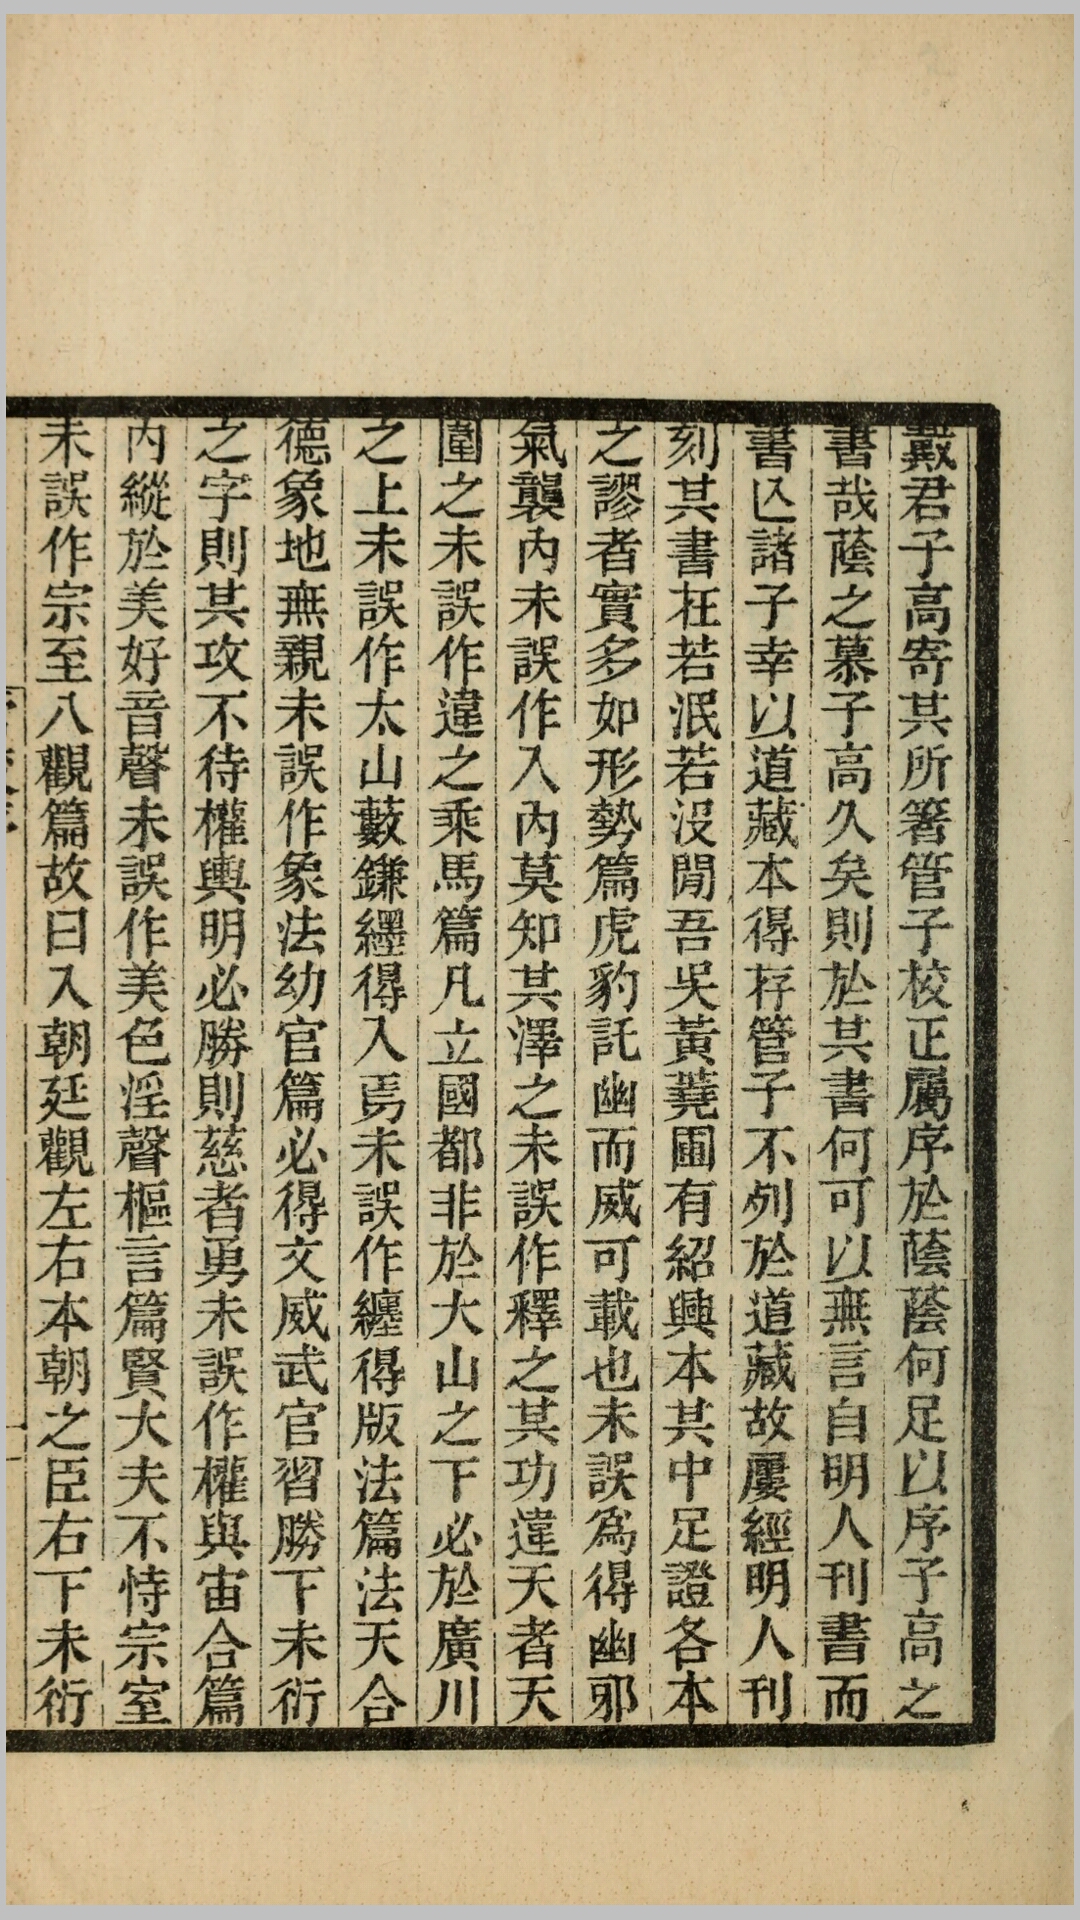 戴君子高寄其所箸管子校正屬序於蔭蔭何足以序子高之
書哉蔭之慕子高久矣則於其書何可以無言自明人刊書而
書亾諸子幸以道藏本得存管子不列於道藏故屢經明人刊
刻其書在若泯若沒閒吾吳黃蕘圃有紹興本其中足證各本
之謬者實多如形勢篇虎豹託幽而威可載也未誤爲得幽邪
氣襲內未誤作入內莫知其澤之未誤作釋之其功違天者天
圍之未誤作違之乘馬篇凡立國都非於大山之下必於廣川
之上未誤作太山藪鎌纆得入焉未誤作纏得版法篇法天合
德象地無親未誤作象法幼官篇必得文威武官習勝下未衍
之字則其攻不待權輿明必勝則慈者勇未誤作權與宙合篇
內縱於美好音聲未誤作美色淫聲樞言篇賢大夫不恃宗室
未誤作宗至八觀篇故曰入朝廷觀左右本朝之臣右下未衍